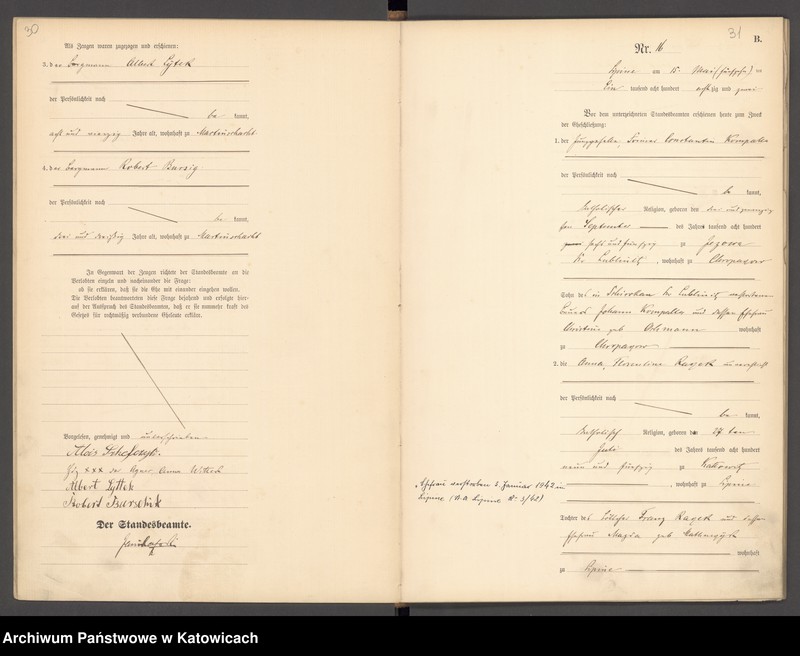 30
Als Zeugen waren zugezogen und erschienen:
3. der Bergmann Albert Lytek
der Persönlichkeit nach
be kannt,
acht und vierzig Jahre alt, wohnhaft zu Martinschacht
4. der Bergmann Robert
der Persönlichkeit nach
be kannt,
drei und dreißig Jahre alt, wohnhaft zu Martinschacht
In Gegenwart der Zeugen richtete der Standesbeamte an die
Verlobten einzeln und nacheinander die Frage:
ob sie erklären, daß sie die Ehe mit einander eingehen wollen.
Die Verlobten beantworteten diese Frage bejahend und erfolgte hier-
auf der Ausspruch des Standesbeamten, daß er sie nunmehr kraft des
Gesetzes für rechtmäßig verbundene Eheleute erkläre.
Vorgelesen, genehmigt und unterschrieben
Alois
xxx der Anna
Albert Lyttek
Robert
Der Standesbeamte.
31
B.
Nr. 16
Lipine am 15. Mai (fünfzehn) en
Ein tausend acht hundert achtzig und zwei
Vor dem unterzeichneten Standesbeamten erschienen heute zum Zweck
der Eheschließung:
1. der Junggeselle, Former Constantin Kompalla
der Persönlichkeit nach
be kannt,
katholischer Religion, geboren den drei und zwanzig
sten September des Jahres tausend acht hundert
sechs und fünfzig zu Jezowa
Kr. Lublinitz, wohnhaft zu Chropaczow
Sohn des in Kr. Lublinitz verstorbenen
Johann Kompalla und dessen Ehefrau
Christine geb. wohnhaft
zu Chropaczow
2. die Anna, Florentine Kazek unverehelicht
der Persönlichkeit nach
be kannt,
katholisch Religion, geboren den 27 ten
des Jahres tausend acht hundert
neun und fünfzig zu Kattowitz
, wohnhaft zu Lipine
Ehefrau verstorben 2. Januar 1942 in
Lipine (St. A. Lipine Nr. 3/42)
Tochter des Franz Kazek und dessen
Ehefrau geb.
wohnhaft
zu Lipine
Archiwum Państwowe w Katowicach